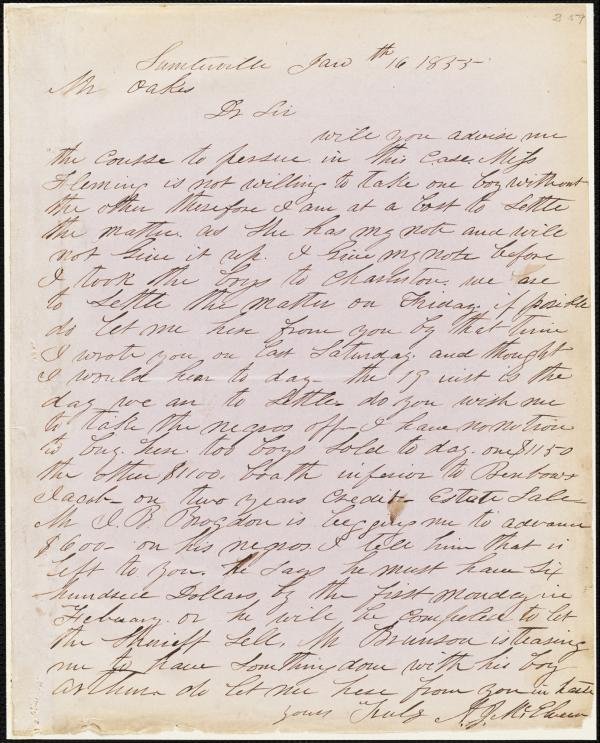 259
Sumterville Jan th 16 1855
Mr Oakes
Dr Sir
will you advise me
the course to persue in this case. Miss
Fleming is not willing to take one boy without
the other therefore I am at a Lost to Settle
the matter. as She has my note and will
not Give it up. I Give my note before
I took the boys to Charleston. we are
to Settle the matter on Friday, if posible
do let me hear from you by that time
I wrote you on Last Saturday and thought
I would hear to day - the 19 inst is the
day we are to Settle - do you wish me
to take the negros off - I have no notion
to buy here. too boys Sold to day. one $1150
the other $1100. boath inferior to Benbow &
Jacob - on two years Credit - Estate Sale -
Mr J. B. Brogdon is begging me to advance
$600 - on his negros. I tell him that is
left to you. he Says he must have Six
hundred Dollars by the first monday in
February. or he will be compeled to let
the Sheriff Sell. Mr Brunson is teasing
me to have Something done with his boy
Arthur do let me here from you in haste
yours Truly A. J. McElveen